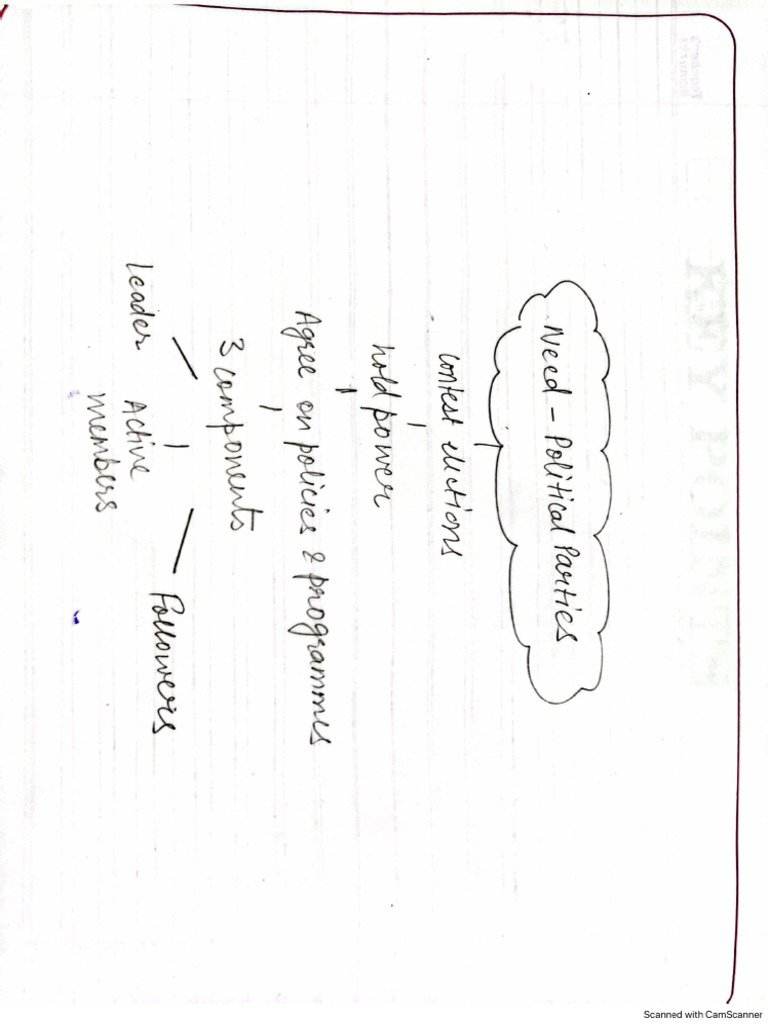 Need - Political Parties
contest elections
hold power
Agree on policies & programmes
3 components
leader Active members Followers
KEY POINTS
Teacher's
Scanned with CamScanner